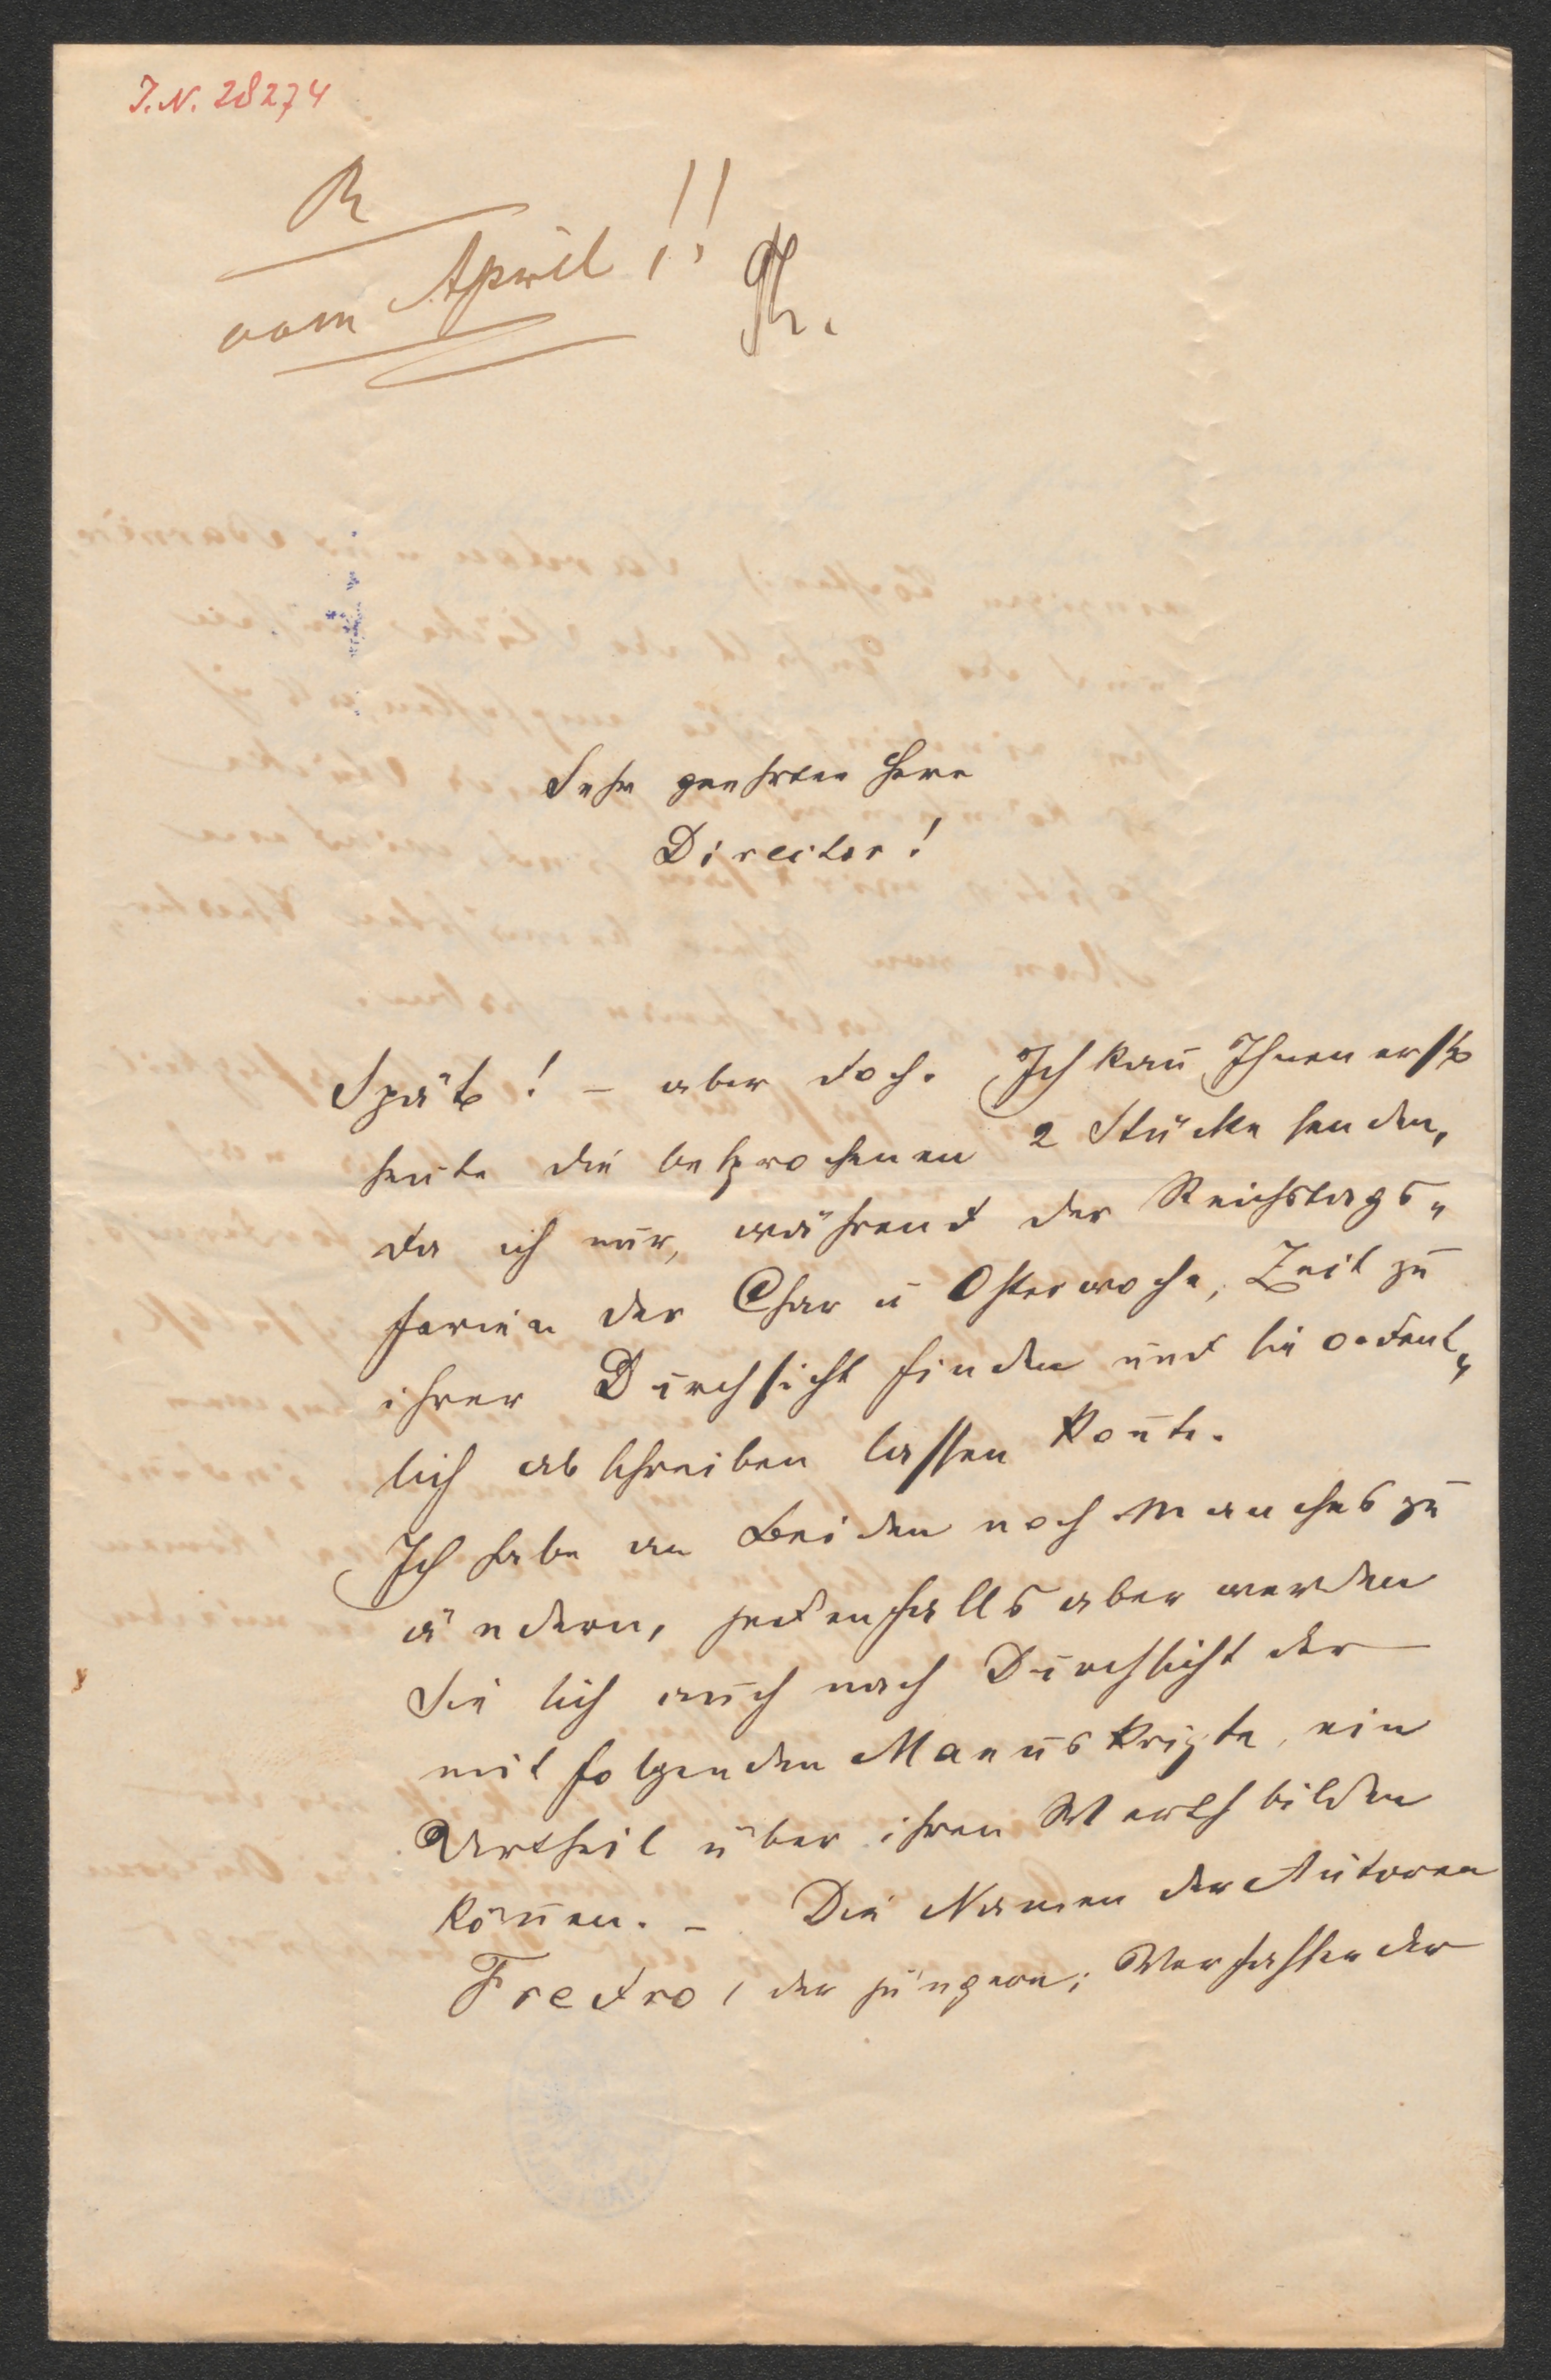 J.N. 28274
R
vom April!!
Sehr geehrter Herr
Director!
Spät! – aber doch. Ich kan̄ Ihnen erst
heute die besprochenen 2 Stücke senden,
da ich nur, während der Reichstags„
ferien der Char u Osterwoche, Zeit zu
ihrer Durchsicht finden und sie ordent„
lich abschreiben lassen kon̄te.
Ich habe an Beiden noch Manches zu
ändern, jedenfalls aber werden
Sie sich auch nach Durchsicht der
mit folgenden Manuskripte, ein
Urtheil über ihren Werth bilden
kön̄en. – Die Namen der Autoren
Fredro, der jüngere; Verfasser der